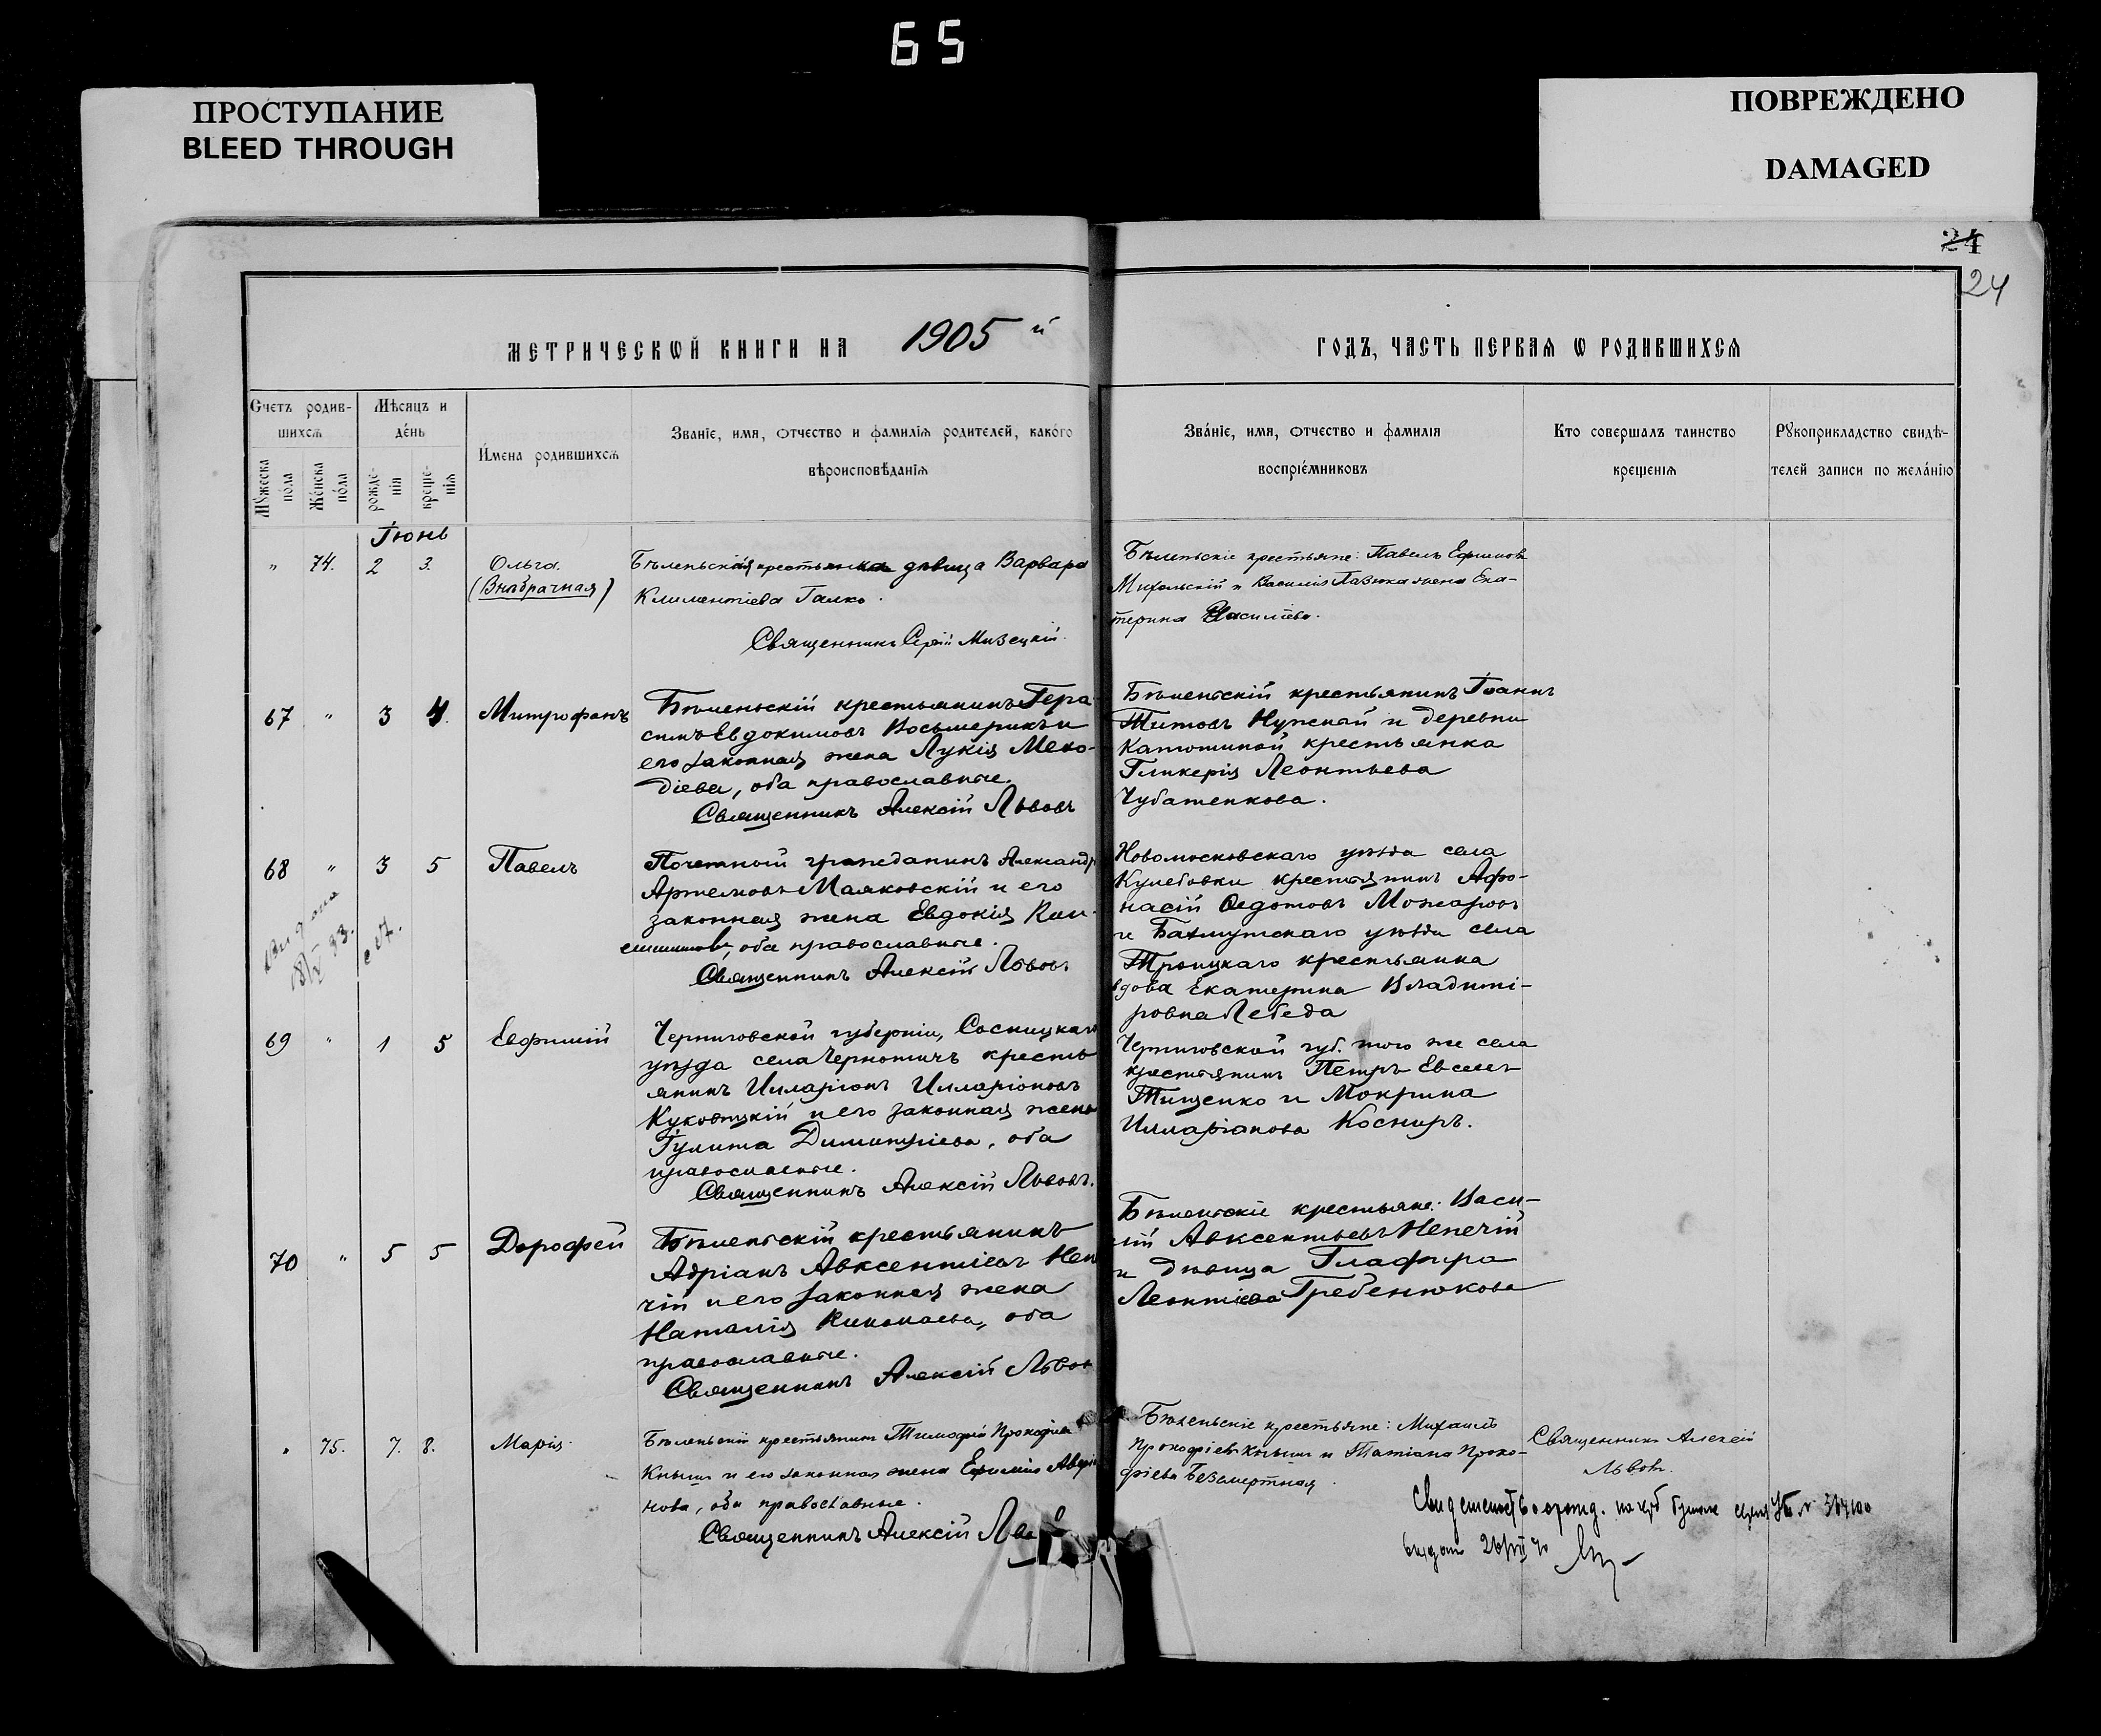 65
ПРОСТУПАНИЕ
BLEED THROUGH
ПОВРЕЖДЕНО
DAMAGED
24
24
МЕТРИЧЕСКѠЙ КНИГИ НА 1905 й
ГОДЪ, ЧАСТЬ ПЕРВАѦ Ѡ РОДИВШИХСѦ
Счетъ родив-
шихсѧ
Мѣсяцъ и
де́нь
И́мена родившихсѧ
Званіе, имя, ѻтчество и фамилія родителей, како́го
вѣроисповѣданія
Мꙋжеска
по́ла
Же́нска
по́ла
рожде-
нія
креще-
нія
Зва́ніе, имя, ѻтчество и фамилія
воспріе́мниковъ
Кто совершалъ таинство
крещенія
Рꙋкоприкладство свидѣ-
телей записи по жела́нію
Іюнь
" 74. 2 3.
Ольга.
(Внѣбрачная)
Бѣленьская крестьянка дѣвица Варвара
Климентіева Галко.
Священникъ Сергій Мизецкій.
Бѣленьскіе крестьяне: Павелъ Ефимовъ
и Василія жена Ека-
терина Васильева.
67 " 3 4.
Митрофанъ
Бѣленьскій крестьянинъ Гера-
симъ Евдокимовъ Восьмерикъ и
его законная жена Лукія Меѳо-
діева, оба православные.
Священникъ Алексій Львовъ
Бѣленьскій крестьянинъ Іоаннъ
Титовъ Нужный и деревни
Катюшиной крестьянка
Гликерія Леонтьева
Чубатенкова.
68 " 3 5
Павелъ
Почетный гражданинъ Александръ
Артемовъ Маяковскій и его
законная жена Евдокія
оба православные.
Священникъ Алексій Львовъ
Новомосковскаго уѣзда села
Кулебовки крестьянинъ Афо-
насій Ѳедотовъ Можаровъ
и Бахмутскаго уѣзда села
Троицкаго крестьянка
вдова Екатерина Владимі-
ровна Лебеда
69 " 1 5
Евфимій
Черниговской губерніи, Сосницкаго
уѣзда села Чернотичъ кресть-
янинъ Илларіонъ Илларіоновъ
Куковицкій и его законная жена
Іулита Димитріева, оба
православные.
Священникъ Алексій Львовъ.
Черниговской губ. того же села
крестьянинъ Петръ
Тищенко и Мокрина
Илларіонова Косниръ.
70 " 5 5
Дорофей
Бѣленьскій крестьянинъ
Адріанъ Авксентіевъ Непе-
чій и его законная жена
Наталія Николаева, оба
православные.
Священникъ Алексій Львовъ
Бѣленьскіе крестьяне: Васи-
лій Авксентьевъ Непечій
и дѣвица Глафира
Леонтіева Гребенюкова
" 75. 7. 8.
Марія.
Бѣленьскій крестьянинъ Тимофей Прокофіевъ
Кнышъ и его законная жена Ефимія
нова, оба православные.
Священникъ Алексій Львовъ
Бѣленьскіе крестьяне: Михаилъ
Прокофіевъ Кнышъ и Татіана Проко-
фіева Безсмертная.
Священникъ Алексій
Львовъ.